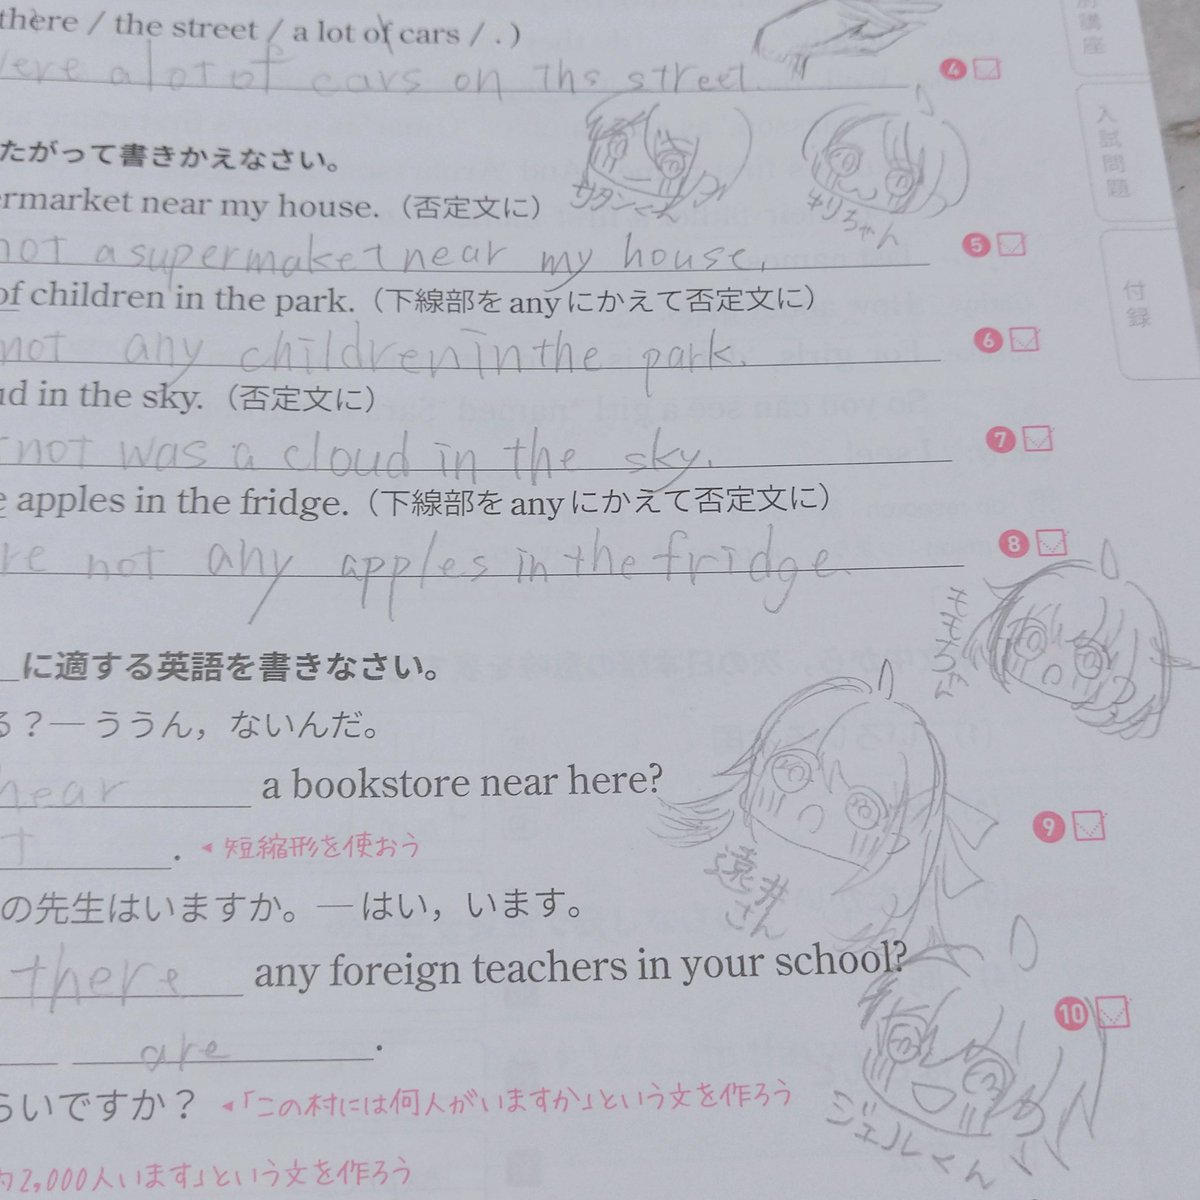 there / the street / a lot of cars / . )
were a lot of cars on ths street.
4
たがって書きかえなさい。
サタンくん
キリちゃん
ermarket near my house.（否定文に）
not a supermaket near my house.
5
of children in the park.（下線部をanyにかえて否定文に）
not any children in the park.
6
ud in the sky.（否定文に）
not was a cloud in the sky.
7
e apples in the fridge.（下線部をanyにかえて否定文に）
re not any apples in the fridge.
8
に適する英語を書きなさい。
る？― ううん，ないんだ。
near a bookstore near here?
9
t . 短縮形を使おう
遠井さん
の先生はいますか。― はい，います。
there any foreign teachers in your school?
10
are .
らいですか？ 「この村には何人がいますか」という文を作ろう
ジェルくん
約2,000人います」という文を作ろう
講座
入試問題
付録